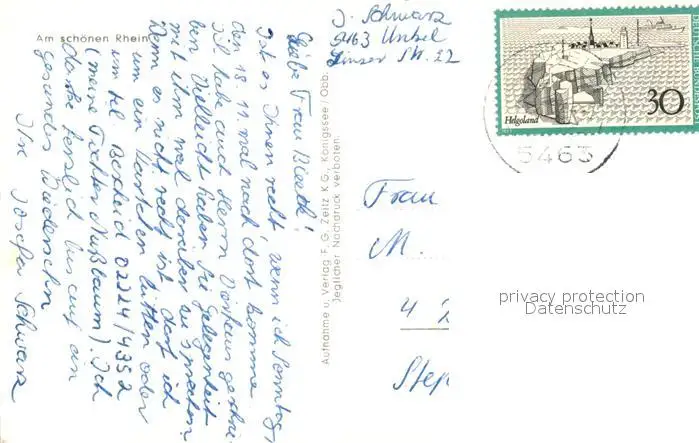 Am schönen Rhein
Liebe Frau Bieeth!
Ist es Ihnen recht, wenn ich Sonntag,
den 18. 11 mal nach dort komme
Ich habe auch Herrn geschrie-
ben Vielleicht haben Sie Gelegenheit
mit ihm mal darüber zu sprechen.
Wenn es nicht recht ist, darf ich
um ein Kärtchen bitten oder
um tel Bescheid 02224/4352
(meine Tochter Nußbaum). Ich
danke herzlich bis auf ein
gesundes Wiedersehn
Ihre Josefa Schwarz
Aufnahme u. Verlag F. G. Zeitz K G., Königssee / Obb.
Jeglicher Nachdruck verboten.
J. Schwarz
5463 Unkel
Linzer Str. 22
DEUTSCHE BUNDESPOST
Helgoland
30
5463
Frau
M.
4
privacy protection
Datenschutz